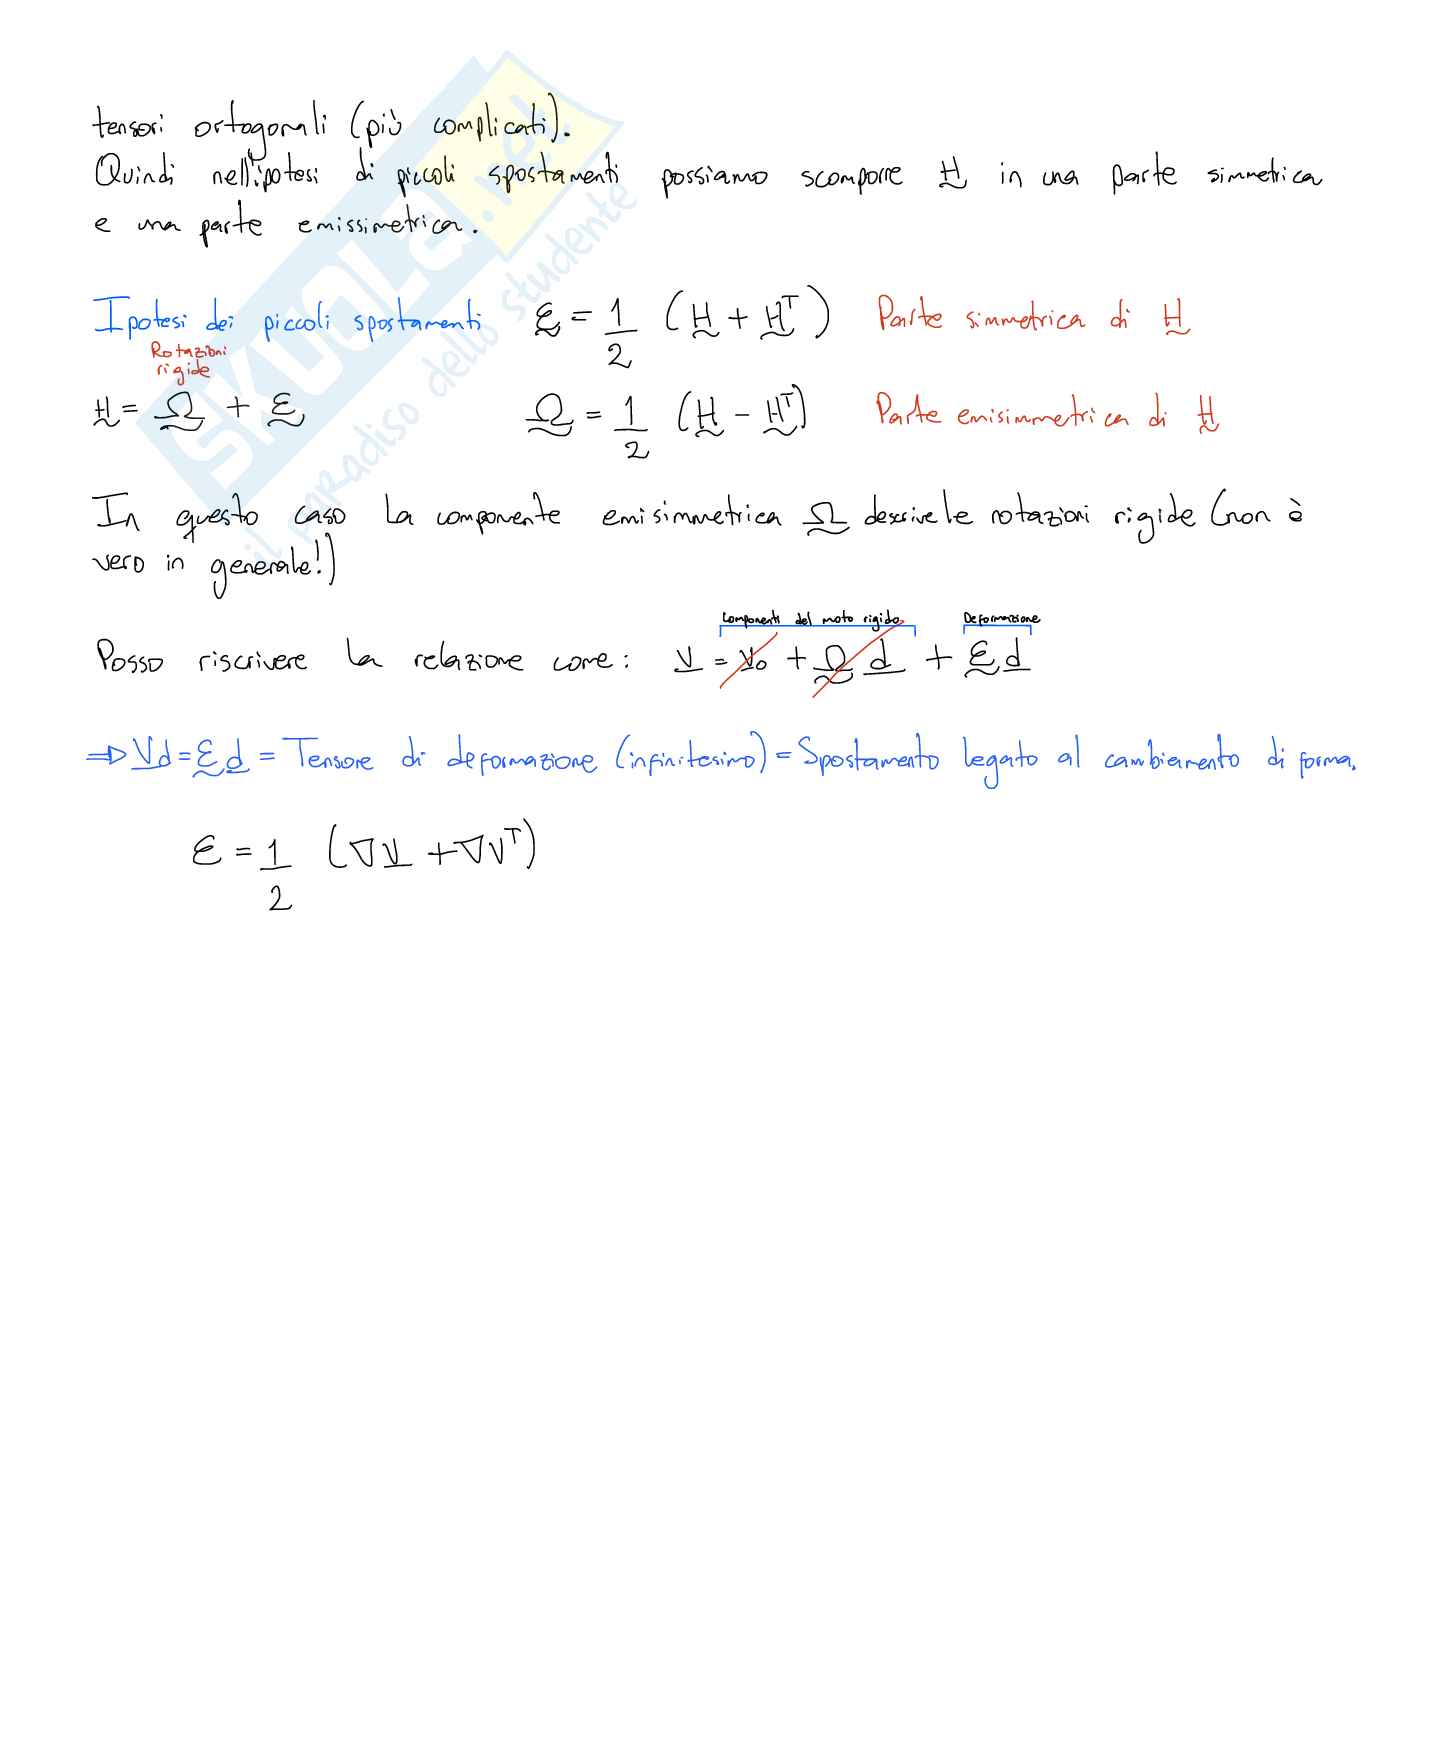 tensori ortogonali (più complicati).
Quindi nell'ipotesi di piccoli spostamenti possiamo scomporre H in una parte simmetrica
e una parte emissimetrica.
Ipotesi dei piccoli spostamenti ε = 1/2 (H + Hᵀ) Parte simmetrica di H
Rotazioni
rigide
H = Ω + ε Ω = 1/2 (H - Hᵀ) Parte emisimmetrica di H
In questo caso la componente emisimmetrica Ω descrive le rotazioni rigide (non è
vero in generale!)
Componenti del moto rigido Deformazione
Posso riscrivere la relazione come: v = v₀ + Ω d + ε d
⇒ Vd = ε d = Tensore di deformazione (infinitesimo) = Spostamento legato al cambiamento di forma.
ε = 1/2 (∇v + ∇vᵀ)
SKUOLA.net
il paradiso dello studente